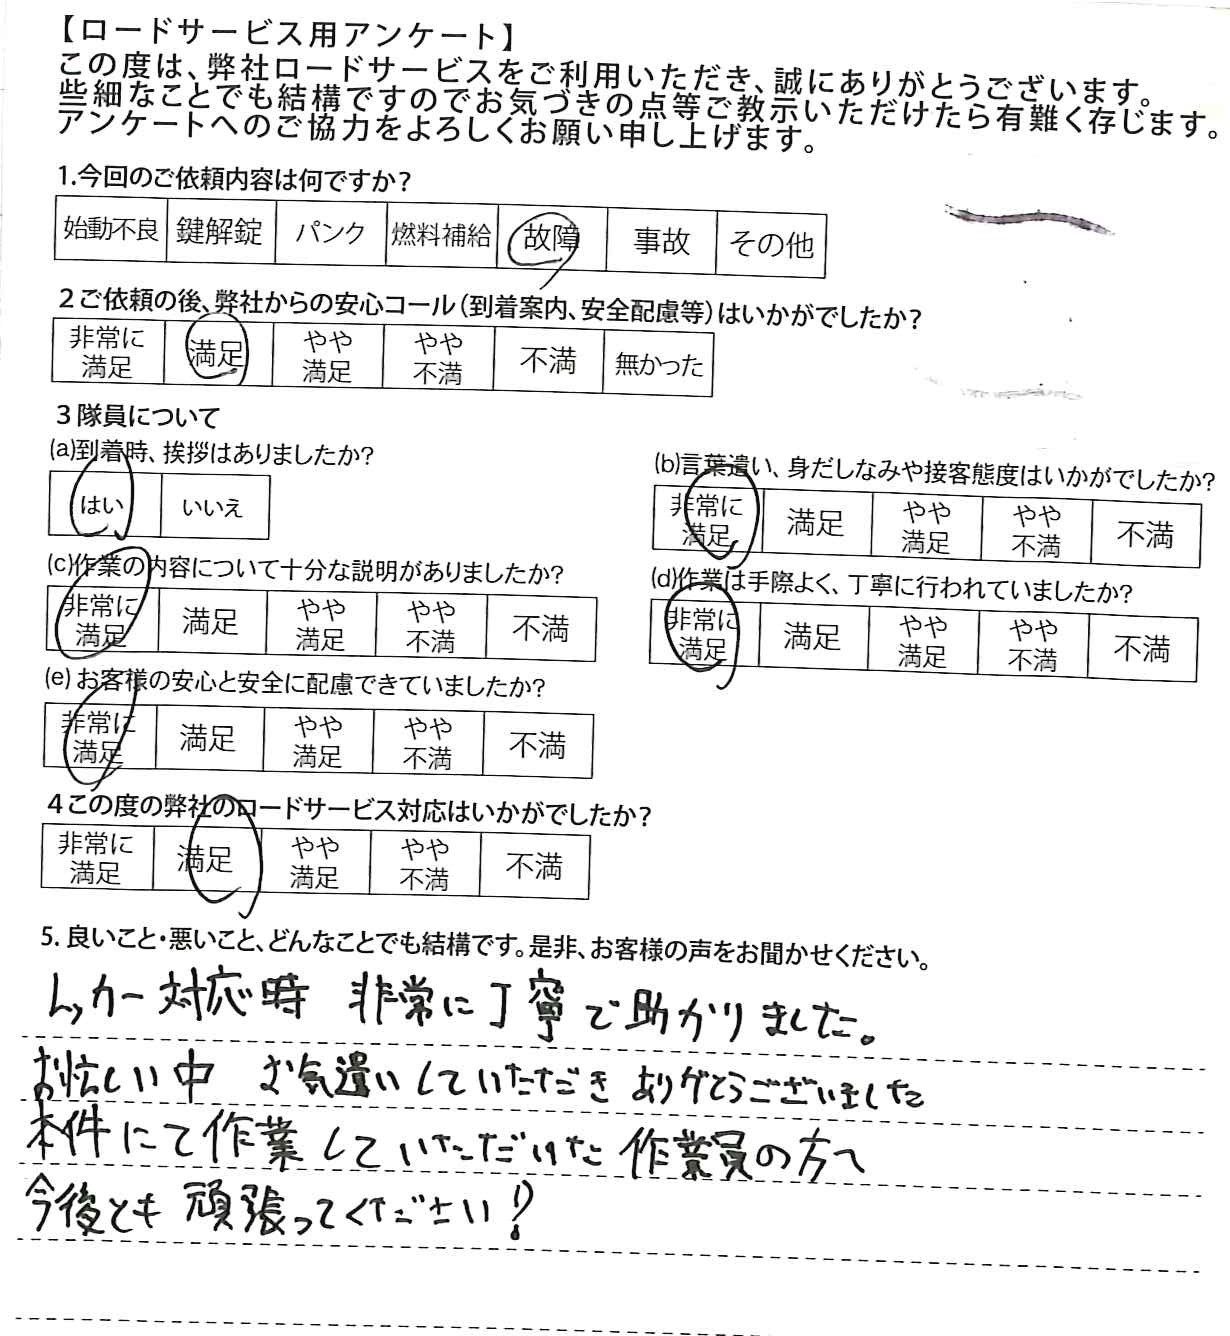 【ロードサービス用アンケート】
この度は、弊社ロードサービスをご利用いただき、誠にありがとうございます。
些細なことでも結構ですのでお気づきの点等ご教示いただけたら有難く存じます。
アンケートへのご協力をよろしくお願い申し上げます。
1.今回のご依頼内容は何ですか?
始動不良 鍵解錠 パンク 燃料補給 故障 事故 その他
2ご依頼の後、弊社からの安心コール(到着案内、安全配慮等)はいかがでしたか?
非常に満足 満足 やや満足 やや不満 不満 無かった
3隊員について
(a)到着時、挨拶はありましたか?
はい いいえ
(b)言葉遣い、身だしなみや接客態度はいかがでしたか?
非常に満足 満足 やや満足 やや不満 不満
(c)作業の内容について十分な説明がありましたか?
非常に満足 満足 やや満足 やや不満 不満
(d)作業は手際よく、丁寧に行われていましたか?
非常に満足 満足 やや満足 やや不満 不満
(e)お客様の安心と安全に配慮できていましたか?
非常に満足 満足 やや満足 やや不満 不満
4この度の弊社のロードサービス対応はいかがでしたか?
非常に満足 満足 やや満足 やや不満 不満
5.良いこと・悪いこと、どんなことでも結構です。是非、お客様の声をお聞かせください。
レッカー対応時 非常に丁寧で助かりました。
お忙しい中 お気遣いしていただき ありがとうございました
本件にて作業していただいた 作業員の方へ
今後とも 頑張ってください!